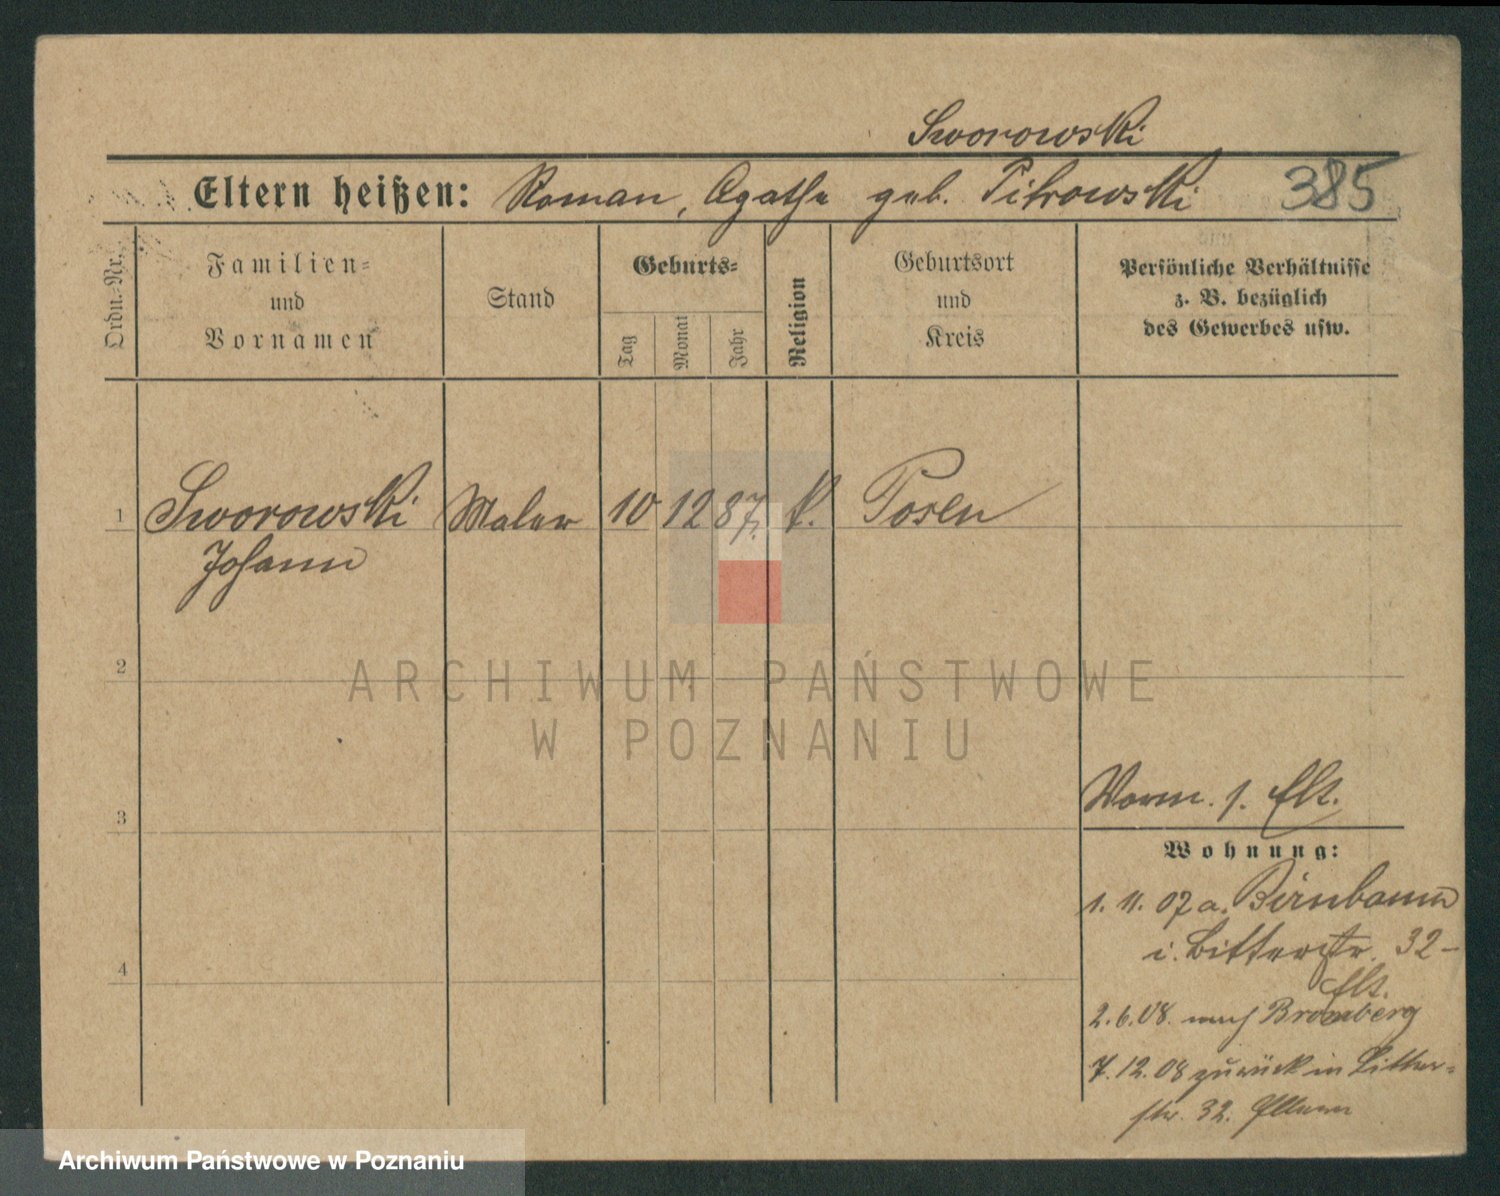 Sworowski
Eltern heißen: Roman, Agathe geb. Pitrowski 385
Ordn.-Nr.
Familien-
und
Vornamen
Stand
Geburts-
Tag
Monat
Jahr
Religion
Geburtsort
und
Kreis
Persönliche Verhältnisse
z. B. bezüglich
des Gewerbes usw.
1 Sworowski Maler 10 12 87. k. Posen
Johann
2
3
4
Vorm. s. Elt.
Wohnung:
1. 11. 07 a. Birnbaum
i. Bitterstr. 32 -
Elt.
2. 6. 08. nach Bromberg
7. 12. 08 zurück in Bitter-
str. 32. Eltern
ARCHIWUM PAŃSTWOWE
W POZNANIU
Archiwum Państwowe w Poznaniu